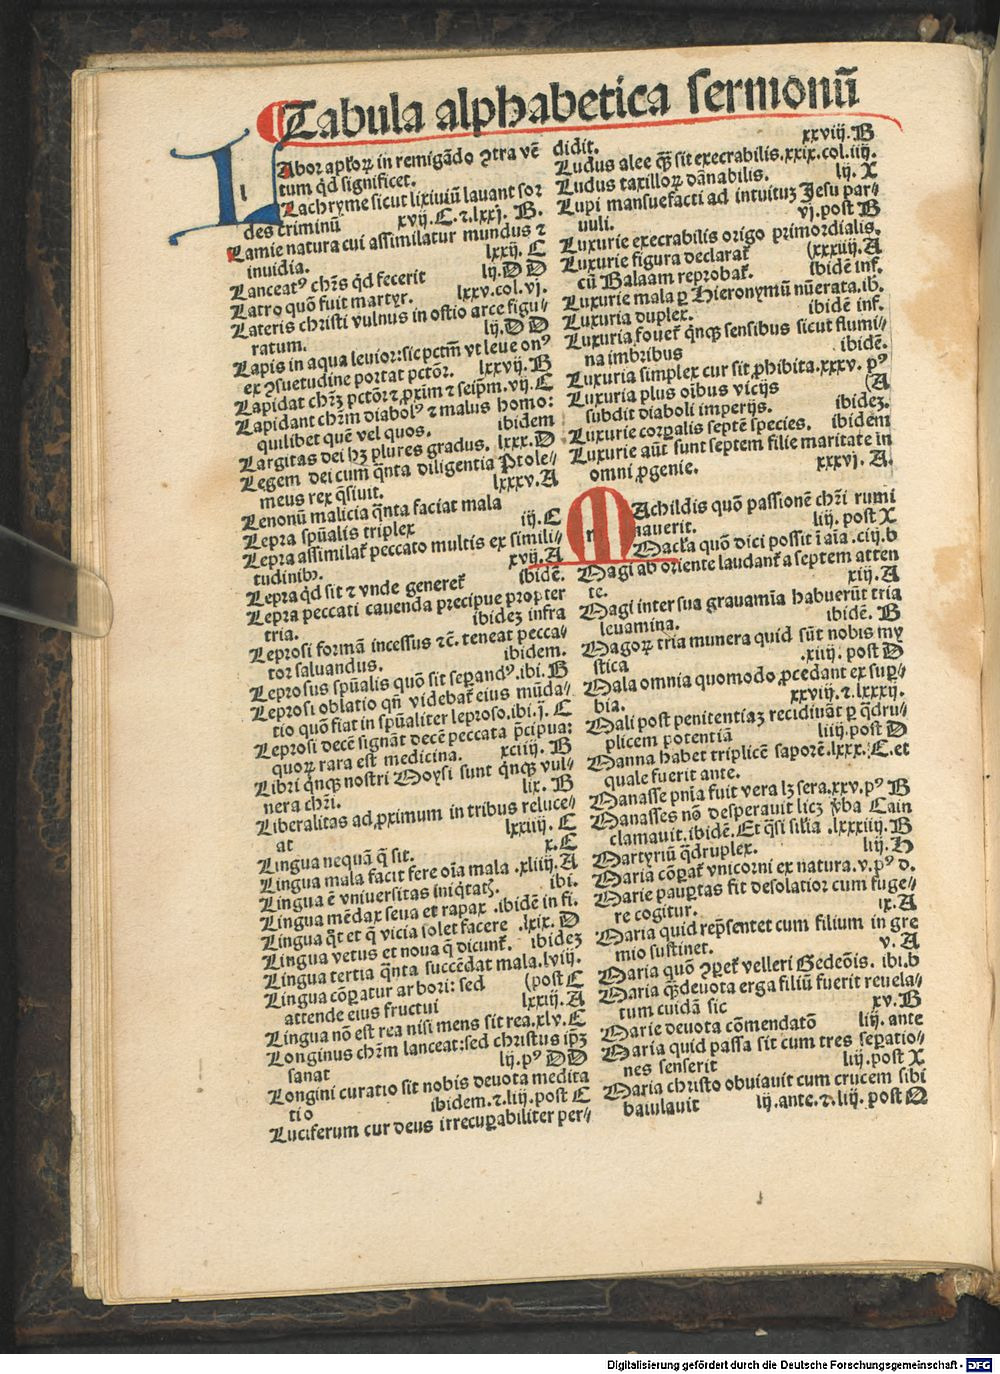 Tabula alphabetica sermonū
LAbor apl'oꝝ in remigādo ꝯtra vē
tum qd̄ significet.
Lachryme sicut lixiuiū lauant sor
des criminū xvij. C. ⁊. lxxj. B.
Lamie natura cui assimilatur mundus ⁊
inuidia. lxxij. C
Lanceatꝰ chr̄s qd̄ fecerit lij. D D
Latro quō fuit martyr. lxxv. col. vj.
Lateris christi vulnus in ostio arce figu-
ratum. lij. D D
Lapis in aqua leuior: sic pctm̄ vt leue onꝰ
ex ꝯsuetudine portat pctōr. lxxvij. B
Lapidat chr̄ꝫ pctōr ⁊ ꝓxim̄ ⁊ seip̄m. vij. C
Lapidant chr̄m diabolꝰ ⁊ malus homo:
quilibet quē vel quos. ibidem
Largitas dei hꝫ plures gradus. lxxx. D
Legem dei cum q̄nta diligentia Ptole-
meus rex q̄siuit. lxxxv. A
Lenonū malicia q̄nta faciat mala
Lepra spūalis triplex iij. C
Lepra assimilat̄ peccato multis ex simili-
tudinibꝰ. xvij. A
Lepra qd̄ sit ⁊ vnde generet̄ ibidē.
Lepra peccati cauenda precipue propter
tria. ibidez infra
Leprosi formā incessus ⁊c̄. teneat pecca-
tor saluandus. ibidem.
Leprosus spūalis quō sit seꝑandꝰ. ibi. B
Leprosi oblatio qn̄ videbat̄ eius mūda-
tio quō fiat in spūaliter leproso. ibi. j. C
Leprosi decē signāt decē peccata p̄cipua:
quoꝝ rara est medicina. xciiij. B
Libri q̄nqꝫ nostri Moysi sunt q̄nqꝫ vul-
nera chr̄i. lix. B
Liberalitas ad ꝓximum in tribus reluce-
at lxxiiij. C
Lingua nequā q̄ sit. x. C
Lingua mala facit fere oīa mala . xliiij. A
Lingua ē vniuersitas iniq̄tatꝭ. ibi.
Lingua mēdax seua et rapax . ibidē in fi.
Lingua q̄t et q̄ vicia solet facere . lxix. D
Lingua vetus et noua q̄ dicunt̄. ibidez
Lingua tertia q̄nta succēdat mala. lviij.
Lingua cōꝑatur arbori: sed (post C
attende eius fructui lxxiij. A
Lingua nō est rea nisi mens sit rea. xlv. C
Longinus chr̄m lanceat: sed christus ip̄ꝫ
sanat lij. pꝰ D D
Longini curatio sit nobis deuota medita
tio ibidem. ⁊. liij. post C
Luciferum cur deus irrecuꝑabiliter per-
didit. xxviij. B
Ludus alee q̄ꝫ sit execrabilis. xxix. col. iij.
Ludus taxilloꝝ dānabilis. lij. X
Lupi mansuefacti ad intuituꝫ Jesu par-
uuli. vj. post B
Luxurie execrabilis origo primordialis.
Luxurie figura declarat̄ (xxxiij. A
cū Balaam reprobat̄. ibidē inf.
Luxurie mala ꝑ Hieronymū nūerata. ib̄.
Luxuria duplex. ibidē inf.
Luxuria fouet̄ q̄nqꝫ sensibus sicut flumi-
na imbribus ibidē.
Luxuria simplex cur sit ꝓhibita. xxxv. pꝰ
Luxuria plus oībus vicijs (A
subdit diaboli imperijs. ibidez.
Luxurie corꝑalis septē species. ibidem
Luxurie aūt sunt septem filie maritate in
omni ꝓgenie. xxxvj. A.
MAchildis quō passionē chr̄i rumi
nauerit. liij. post X
Macl'a quō dici possit ī aīa . ciij. b
Magi ab oriente laudant̄ a septem atten
te. xiij. A
Magi inter sua grauamīa habuerūt tria
leuamina. ibidē. B
Magoꝝ tria munera quid sūt nobis my
stica . xiij. post D
Mala omnia quomodo ꝓcedant ex suꝑ-
bia. xxviij. ⁊. lxxxij.
Mali post penitentiaꝫ recidiuāt ꝑ q̄dru-
plicem potentiā liiij. post D
Manna habet triplicē saporē. lxxx. C. et
quale fuerit ante.
Manasse pn̄ia fuit vera lꝫ sera. xxv. pꝰ B
Manasses nō desperauit licꝫ v̄ba Cain
clamauit. ibidē. Et q̄si sil'ia . lxxxiiij. B
Martyriū q̄druplex. liij. H
Maria cōꝑat̄ vnicorni ex natura. v. pꝰ d.
Marie pauꝑtas fit desolatior cum fuge-
re cogitur. ix. A
Maria quid rep̄sentet cum filium in gre
mio sustinet. v. A
Maria quō ꝯꝑet̄ velleri Gedeōis. ibi. b
Maria q̄ꝫ deuota erga filiū fuerit reuela-
tum cuidā sic xv. B
Marie deuota cōmendatō liij. ante
Maria quid passa sit cum tres seꝑatio-
nes senserit liij. post X
Maria christo obuiauit cum crucem sibi
baiulauit lij. ante. ⁊. liij. post Q
Digitalisierung gefördert durch die Deutsche Forschungsgemeinschaft - DFG